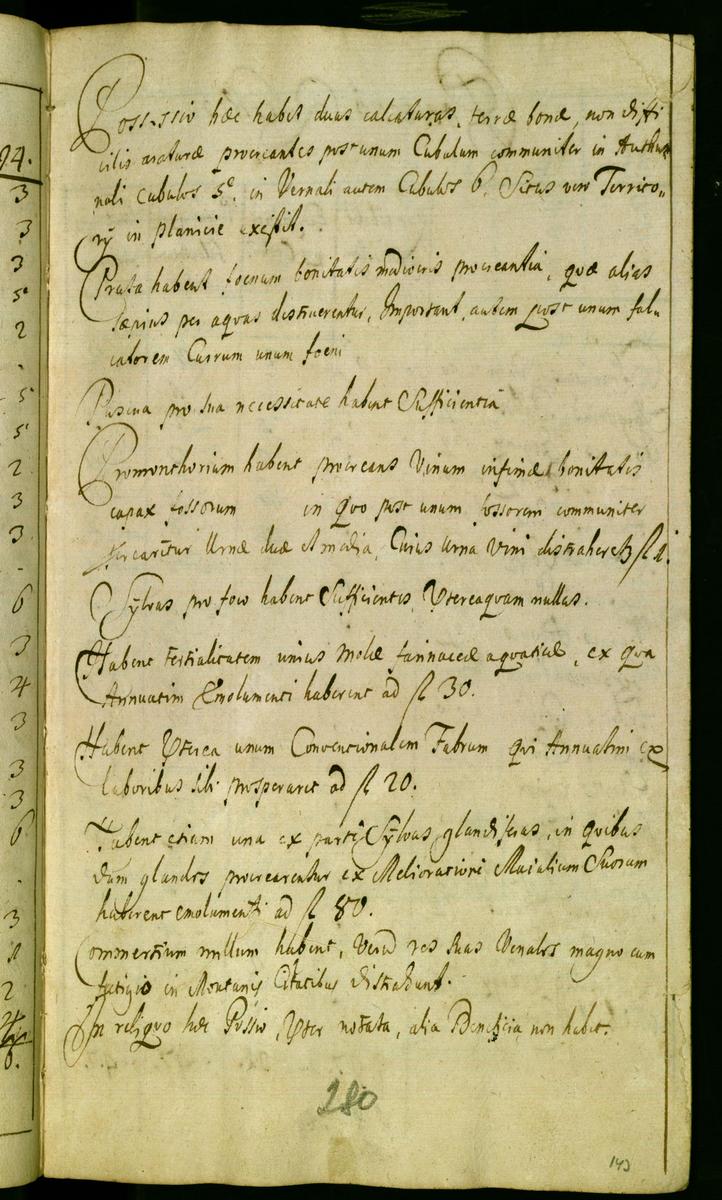 94.
3
3
3
5
2
5
5
2
3
3
6
3
4
3
3
3
6
3
1
2
6.
Possessio hæc habet duas calcaturas, terræ bonæ, non diffi
cilis araturæ procreantes post unum Cubulum communiter in Authum
nali cubulos 5. in Vernali autem Cubulos 6. Situs vero Territo„
rÿ in planicie existit.
Prata habent foenum bonitatis mediocris procreantia, quæ alias
sæpius per aquas destruerentur, Important autem post unum fal„
catorem Currum unum foeni
Pascua pro sua necessitate habent Sufficientia
Promonthorium habent procreans Vinum infimæ bonitatis
capax fossorum in quo post unum fossorem communiter
procreantur Urnæ duæ et media, Cuius Urna Vini distraheret fl 1.
Sÿlvas pro foco habent Sufficientes Ustereaquam nullas.
Habent tertialitatem unius Molæ farinaceæ aquaticæ, ex qua
Annuatim Emolumenti haberent ad fl 30.
Habent Vterea unum Conventionalem Fabrum qui Annuatim ex
laboribus sibi prosperaret ad fl 20.
Habent etiam una ex parte Sÿlvas glandiferas, in quibus
dum glandes procrearentur ex Melioratione Maialium Suorum
haberent emolumenti ad fl 80.
Commertium nullum habent, Verum res suas Venales magno cum
fatigio in Montanis Citatibus distrahunt.
In reliquo hæc Possio, Uter notata, alia Beneficia non habet.
280
143